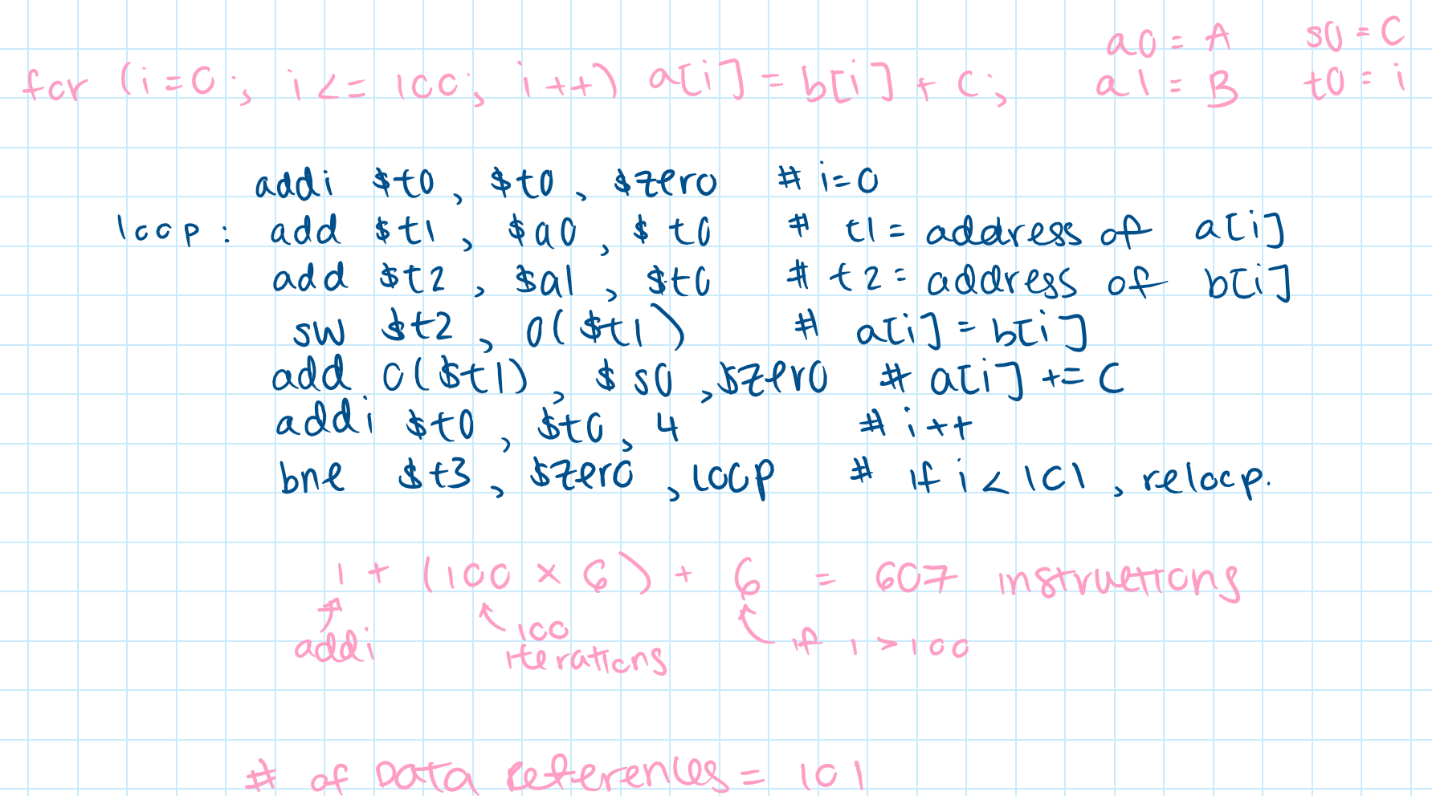 a0 = A s0 = C
for (i=0; i<= 100; i++) a[i] = b[i] + c; a1 = B t0 = i
addi $t0, $t0, $zero # i=0
loop: add $t1, $a0, $t0 # t1 = address of a[i]
add $t2, $a1, $t0 # t2 = address of b[i]
sw $t2, 0($t1) # a[i] = b[i]
add 0($t1), $s0, $zero # a[i] += C
addi $t0, $t0, 4 # i++
bne $t3, $zero, loop # if i < 101, reloop.
1 + (100 × 6) + 6 = 607 instructions
addi 100 iterations if i > 100
# of Data references = 101